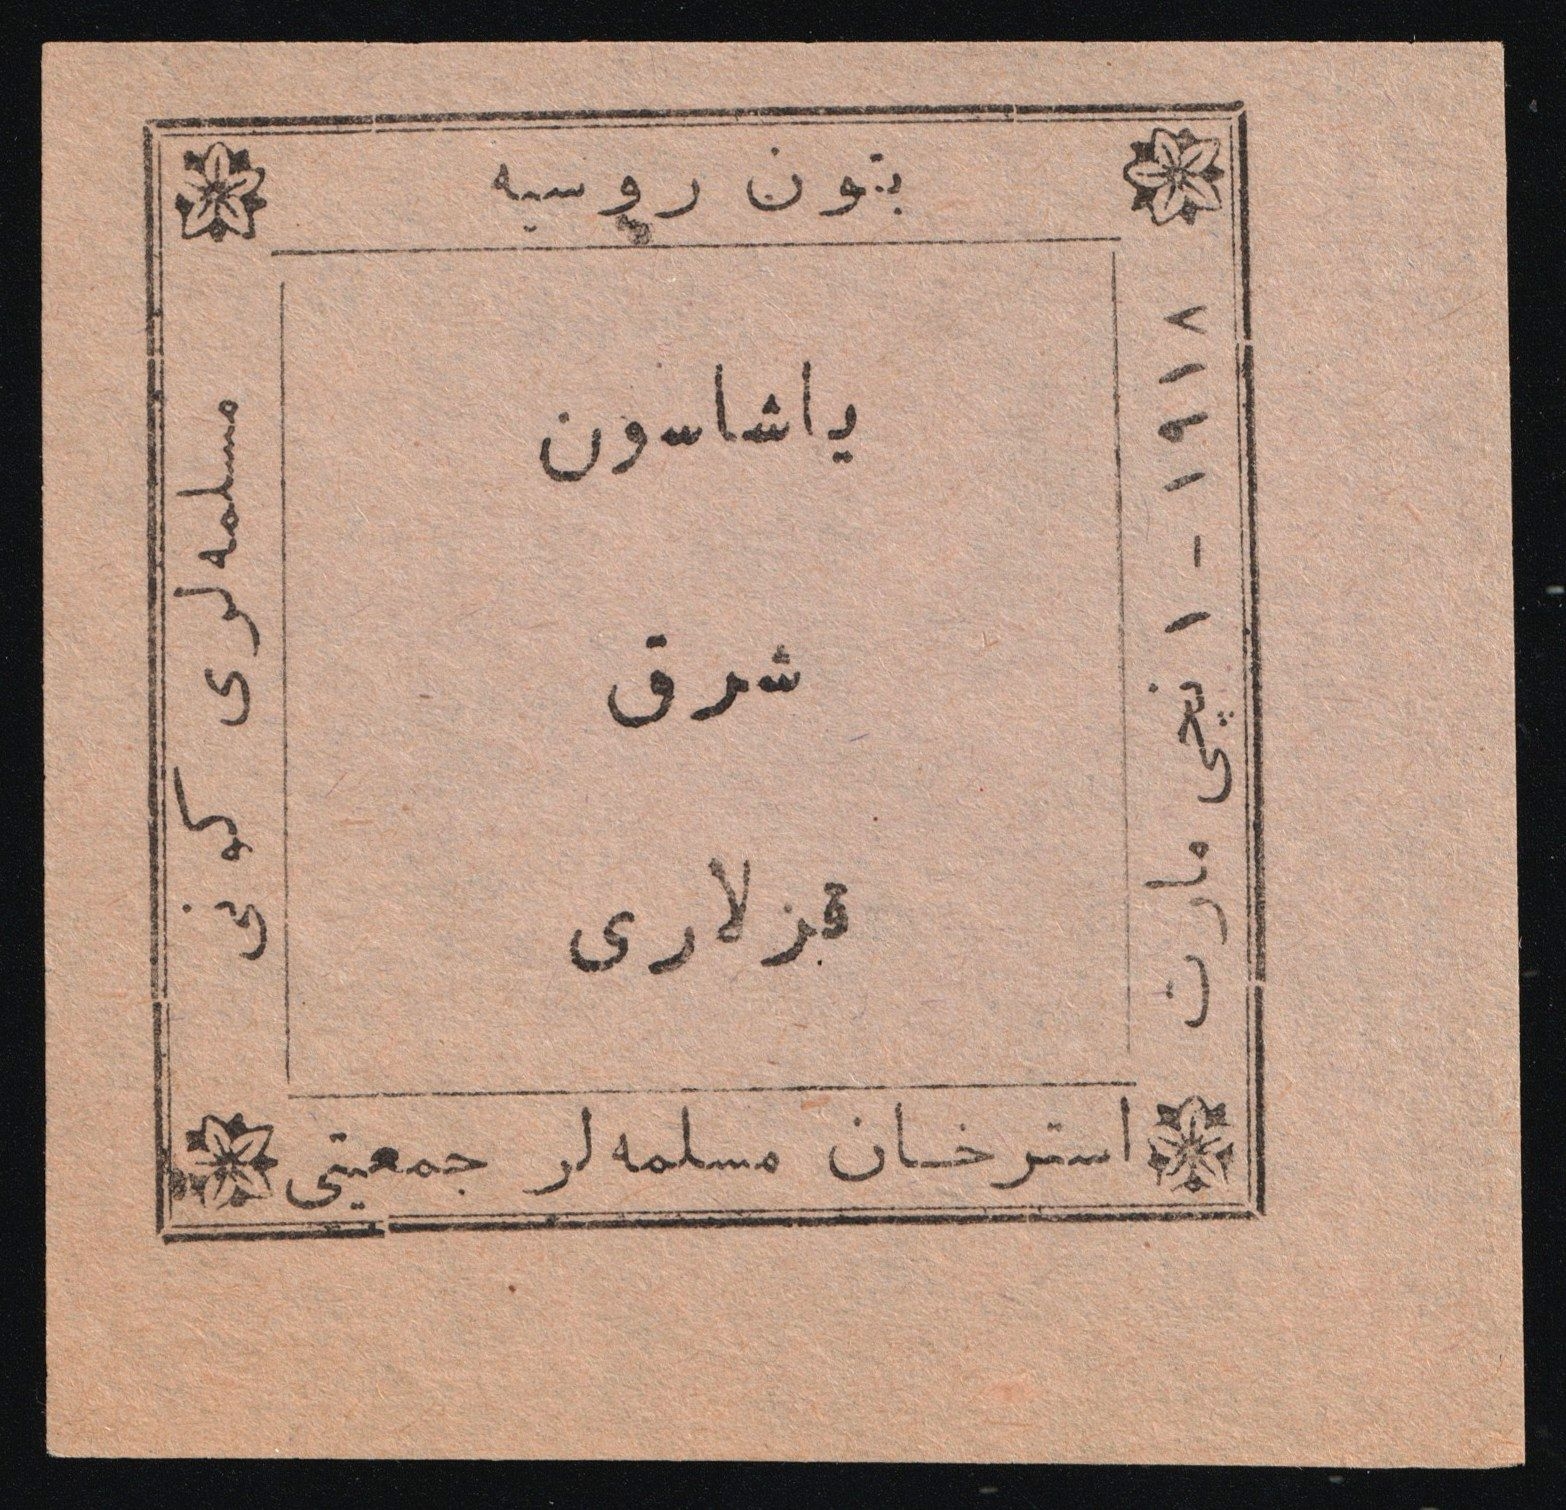 بتون روسیه
مسلمه‌لری كونی
یاشاسون
شرق
قزلاری
۱۹۱۸ - ۱ نچی مارت
استرخان مسلمه‌لر جمعیتی